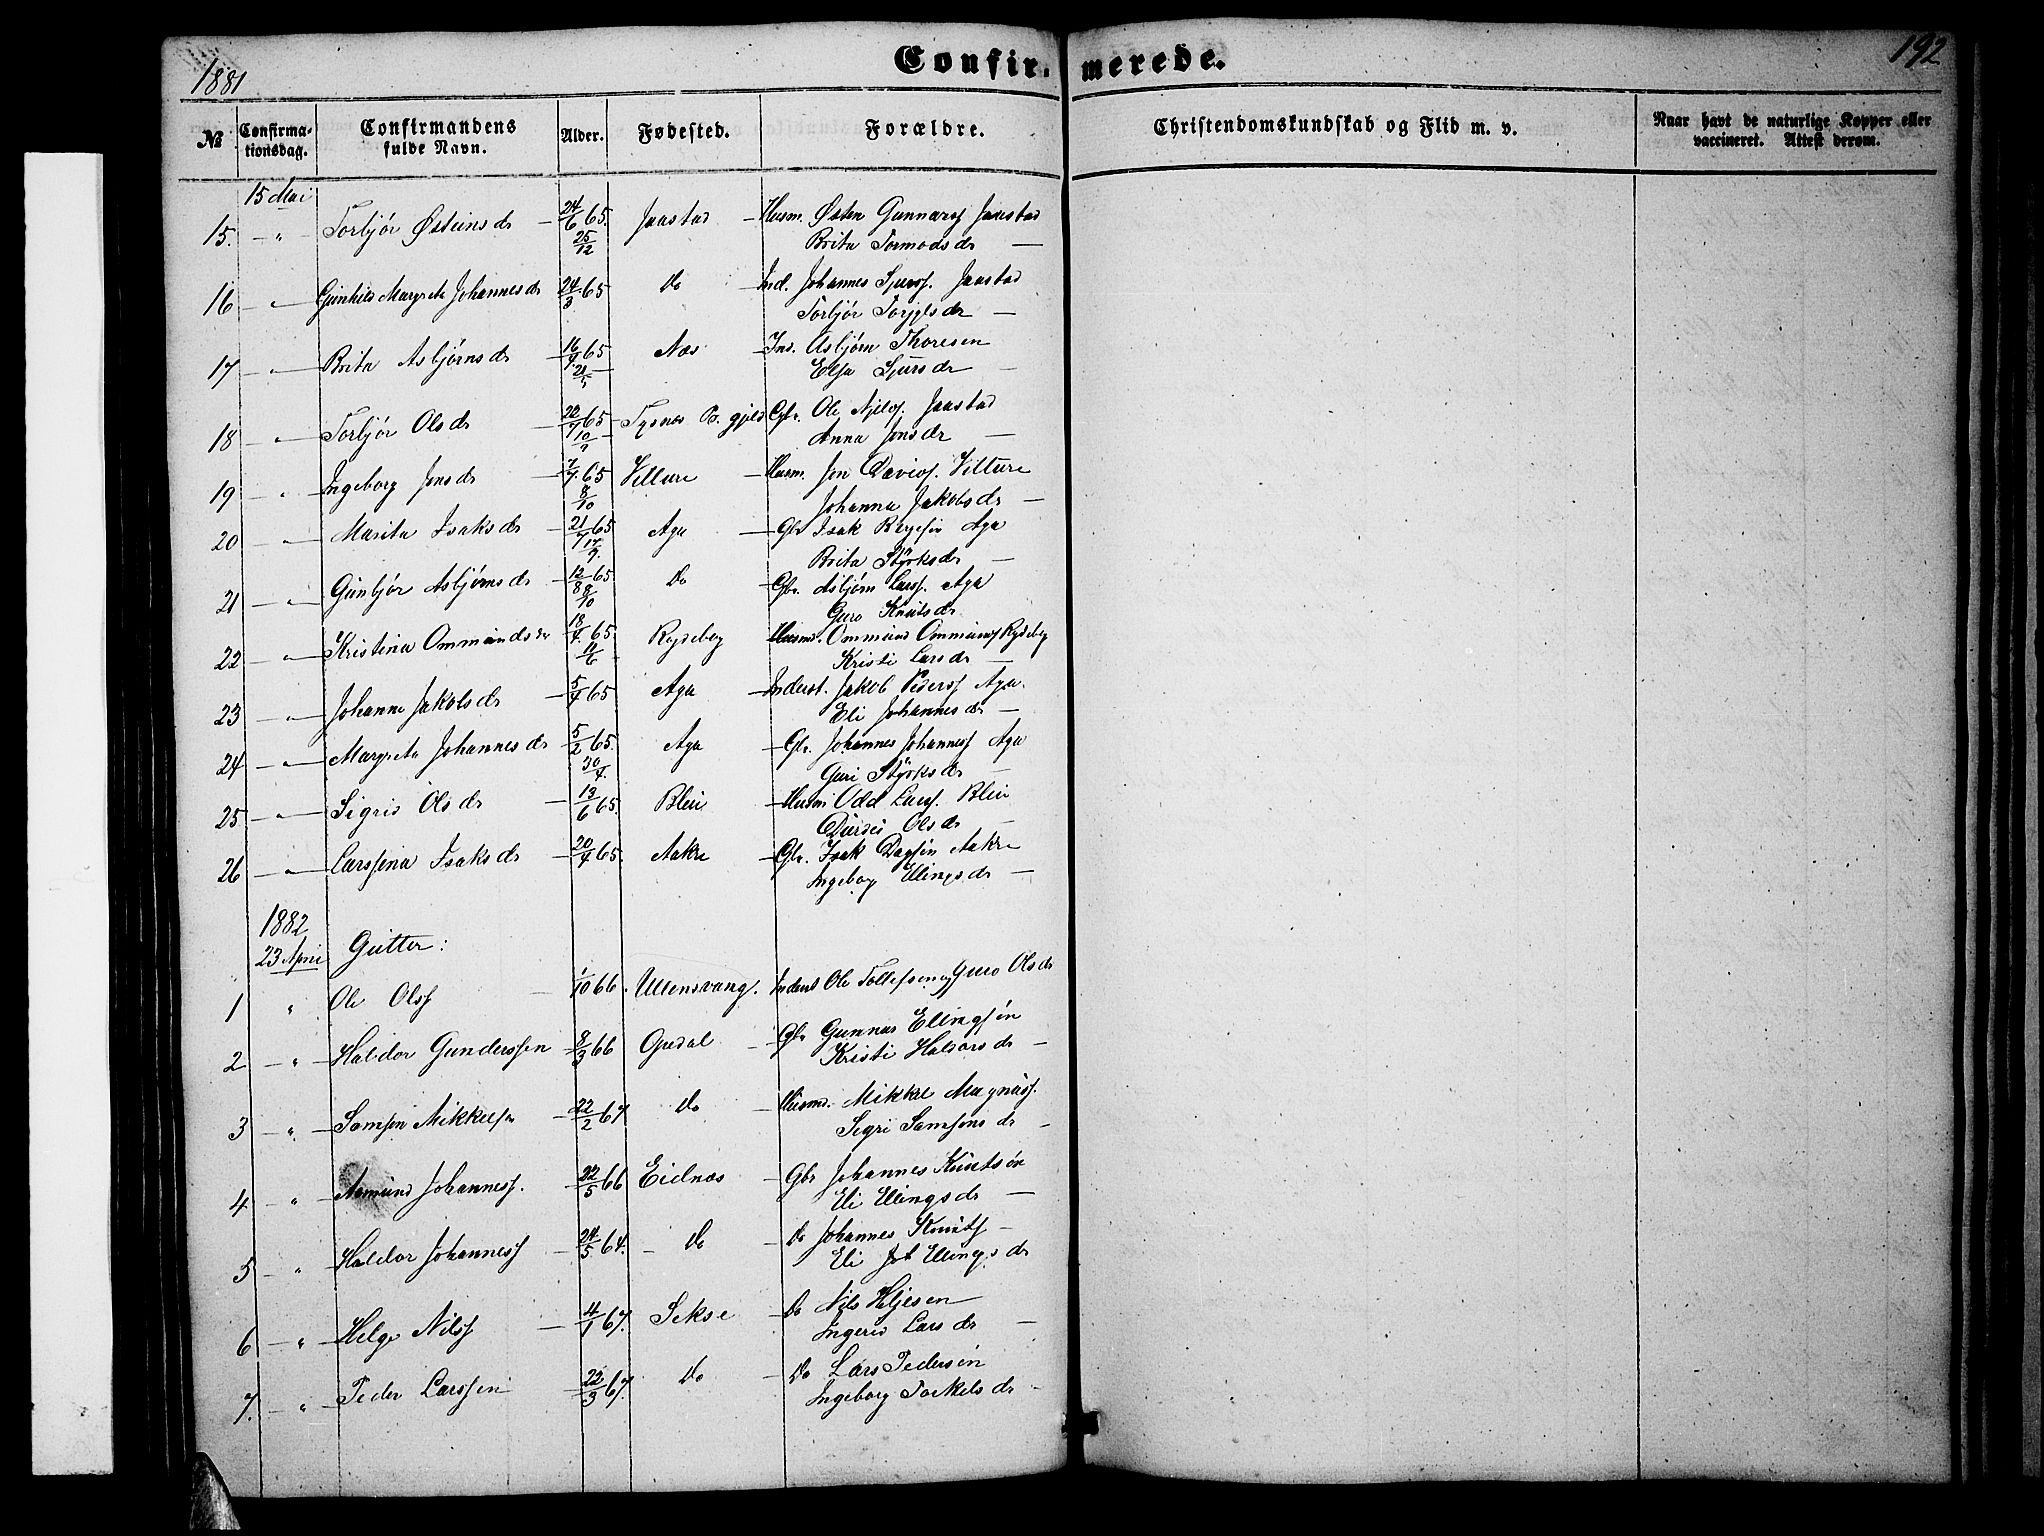 1881
Confirmerede.
192
№
Confirmationsdag.
Confirmandens fulde Navn.
Alder.
Fødested.
Forældre.
Christendomskundskab og Flid m. v.
Naar havt de naturlige Kopper eller vaccineret. Attest derom.
15 Mai
15. — " Torbjør Østeinsdr — 24/6 65. 25/12 Jaastad — Husm. Østen Gunnars. Jaastad
Brita Tormodsdr —
16 — " — Gunhild Margrete Johannesdr 24/3 65 Do Ind. Johannes Sjurss. Jaastad
Torbjør Torgilsdr —
17 — " — Brita Asbjørnsdr 16/4 65 21/5 — Næs — Ind. Asbjørn Thoresen
Elsa Sjursdr —
18 — " — Torbjør Olsdr — 22/7 65 10/9 — Tysnæs Pr. gjeld Gbr. Ole Njels. Jaastad
Anna Jonsdr —
19 — " — Ingeborg Jonsdr — 7/7 65 8/10 Villure — Husm. Jon Davids. Villure
Johanna Jakobsdr —
20 — " — Marita Isaksdr — 21/7 65 17/9. Aga — Gbr Isak Aga
Brita Styrksdr —
21 — " — Gunbjør Asbjørnsdr — 12/8 65. 8/10 Do — Gbr. Asbjørn Larss. Aga
Guro Knutsdr
22 — " — Kristina Ommundsdr 18/4 65. 11/6 Rogdeberg Husmd. Ommund Ommunds. Rogdeberg
Kristi Larsdr —
23 — " — Johanne Jakobsdr — 5/4 65 Aga — Inderst. Jakob Peders. Aga.
Eli Johannesdr —
24 — " — Margreta Johannesdr 5/2 65. 30/4. Aga — Gbr. Johannes Johanness. Aga
Guri Styrksdr —
25. — " — Sigrid Olsdr — 13/6 65. Bleie — Husm Odd Larss. Bleie
Olsdr —
26 — " — Larssina Isaksdr — 20/4 65. Aakre — Gbr. Isak Dagsøn Aakre
Ingeborg Ellingsdr —
1882
23 April Gutter:
1 " Ole Olss. 1/10 66. Ullensvang. Inderst Ole Tollefsen og Guro Olsdr
2 — " — Haldor Gunderssen — 8/3 66 Opedal — Gbr Gunnar Ellingsøn
Kristi Haldorsdr —
3 — " — Samson Mikkelsen — 22/2 67 Do — Husmd. Mikkel Magnuss.
Sigri Samsonsdr —
4 " Aamund Johanness. — 22/5 66 Eidnæs — Gbr Johannes Knutsøn
Eli Ellingsdr —
5 — " — Haldor Johanness. — 24/5 64. — Do — Do Johannes Knuts. —
Eli Ellingsdr
6 — " — Helge Nilss. — 4/1 67. Sekse — Do Nils Heljesen
Ingerid Larsdr —
7. — " — Peder Larssen — 22/3 67. Do — Do Lars Pedersøn
Ingeborg Torkelsdr —